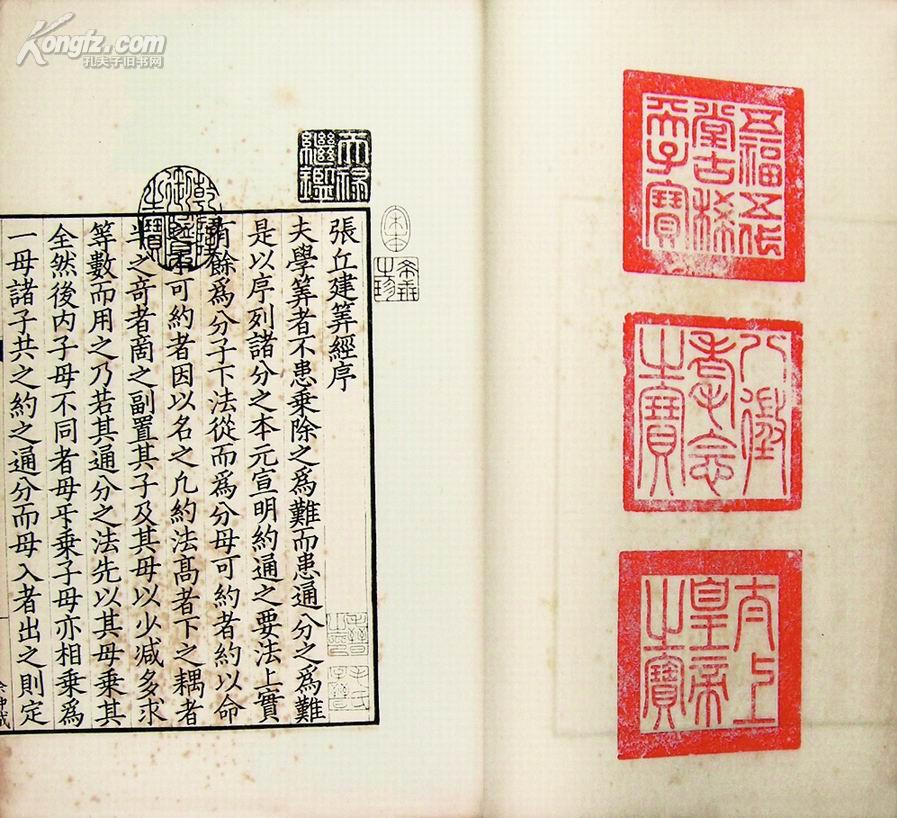 Kongfz.com
孔夫子旧书网
五福五代
堂古稀
天子寶
八徵
耄念
之寶
太上
皇帝
之寶
天祿
繼鑑
乾隆
御覽
之寶
希世
之珍
張丘建筭經序
夫學筭者不患乗除之爲難而患通分之爲難
是以序列諸分之本元宣明約通之要法上實
有餘爲分子下法從而爲分母可約者約以命
之不可約者因以名之凡約法髙者下之耦者
半之奇者啇之副置其子及其母以少减多求
等數而用之乃若其通分之法先以其母乗其
全然後内子母不同者母㸦乗子母亦相乗爲
一母諸子共之約之通分而母入者出之則定